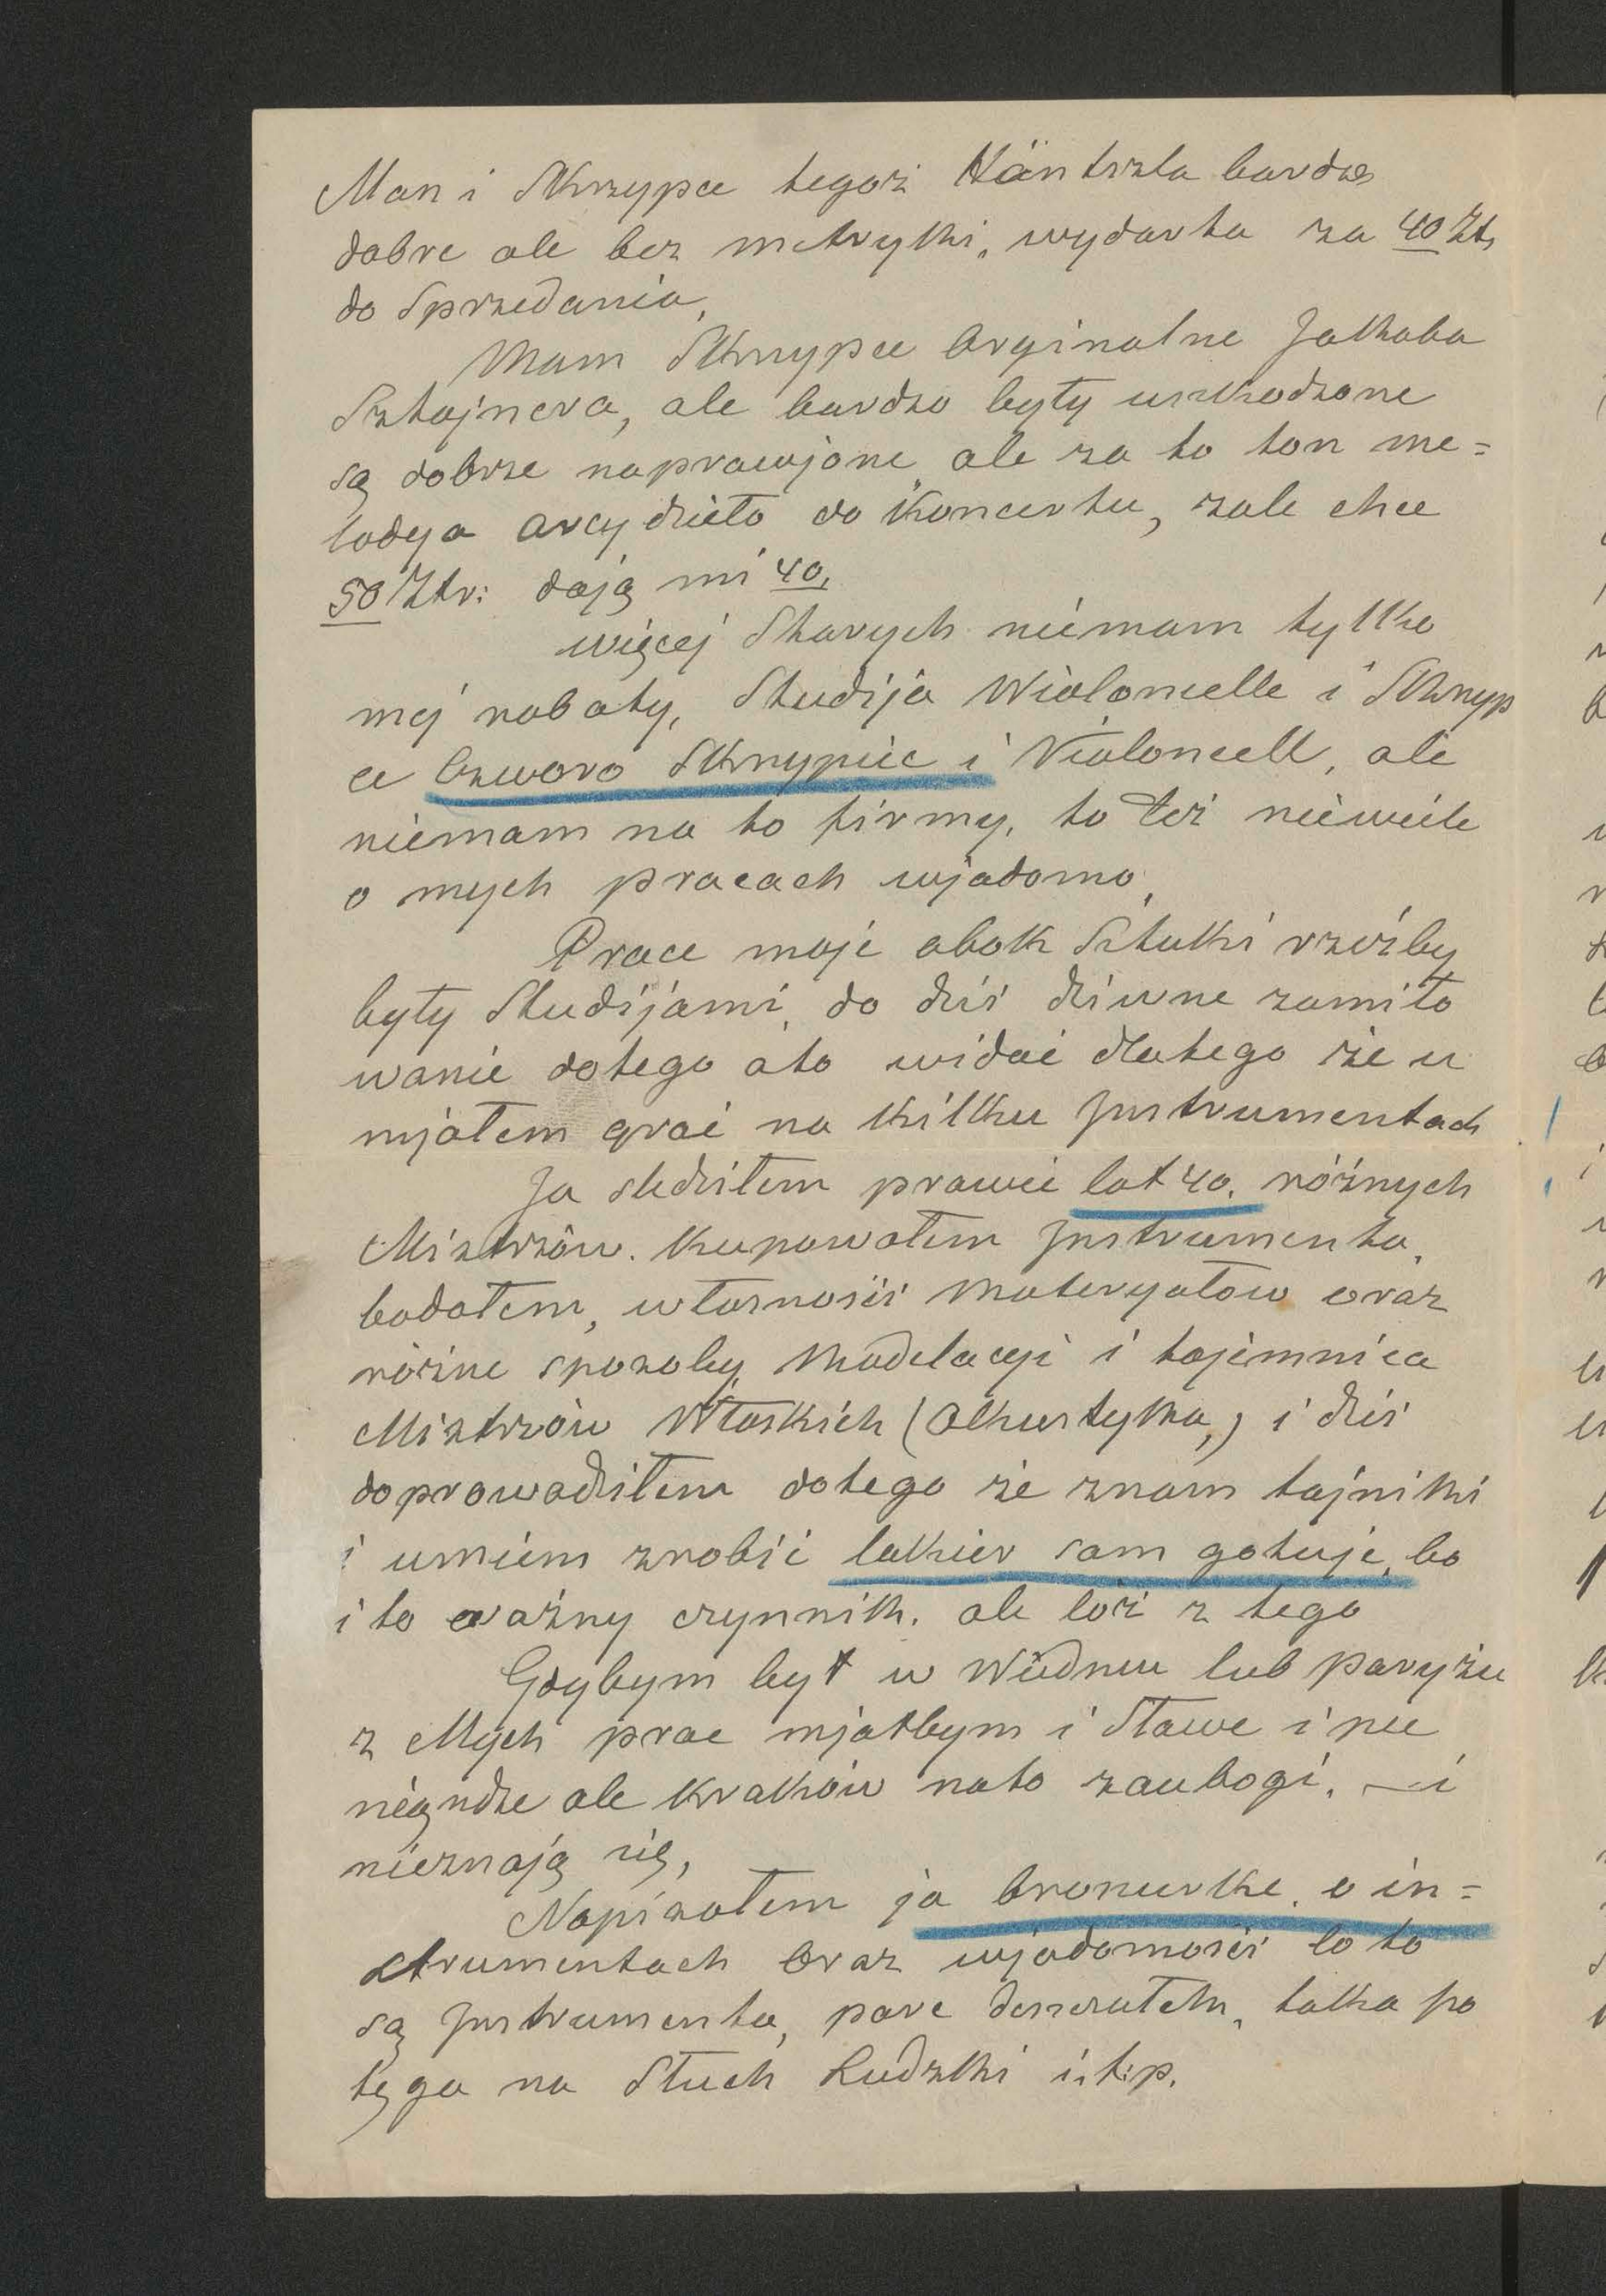 Mam i Skrzypce tegoż Häntszla bardzo
dobre ale bez metryki, wydarta za 40 Zł,
do Sprzedania,
Mam Skrzypce Orginalne Jakkoba
Sztajnera, ale bardzo były uszkodzone
są dobrze naprawjone ale za to ton me=
lodya arcydzieło do Koncertu, zale chce
50 Złr: dają mi 40,
więcej Starych niemam tylko
mej roboty, Studija Wioloncelle i Skrzyp
ce Czworo Skrzypiec i Violoncell, ale
niemam na to firmy, to też niewiele
o mych pracach wjadomo,
Prace moje obok Sztuki rzeźby
były Studijami, do dziś dziwne zamiło
wanie dotego ato widać dlatego że u
mjałem grać na kilku Instrumentach
Ja śledziłem prawie lat 40. różnych
Misztrzów. Kupowałem Instrumenta,
badałem, własności Materyałow oraz
różne spozoby Modelacyi i tajemnica
Misztrzów Włoskich (Akustyka,) i dziś
doprowadziłem dotego że znam tajniki
i umiem zrobić lakier sam gotuje, bo
i to ważny czynnik. ale cóż z tego
Gdybym był w Wiedniu lub paryżu
z Mych prac mjałbym i Sławe i pie
niądze ale Kraków nato zaubogi, — i
nieznają się,
Napizałem ja broszurke, o in=
strumentach Oraz wjadomości co to
są Instrumenta, pare taka po
tęga na Słuch Ludzki i.t.p.